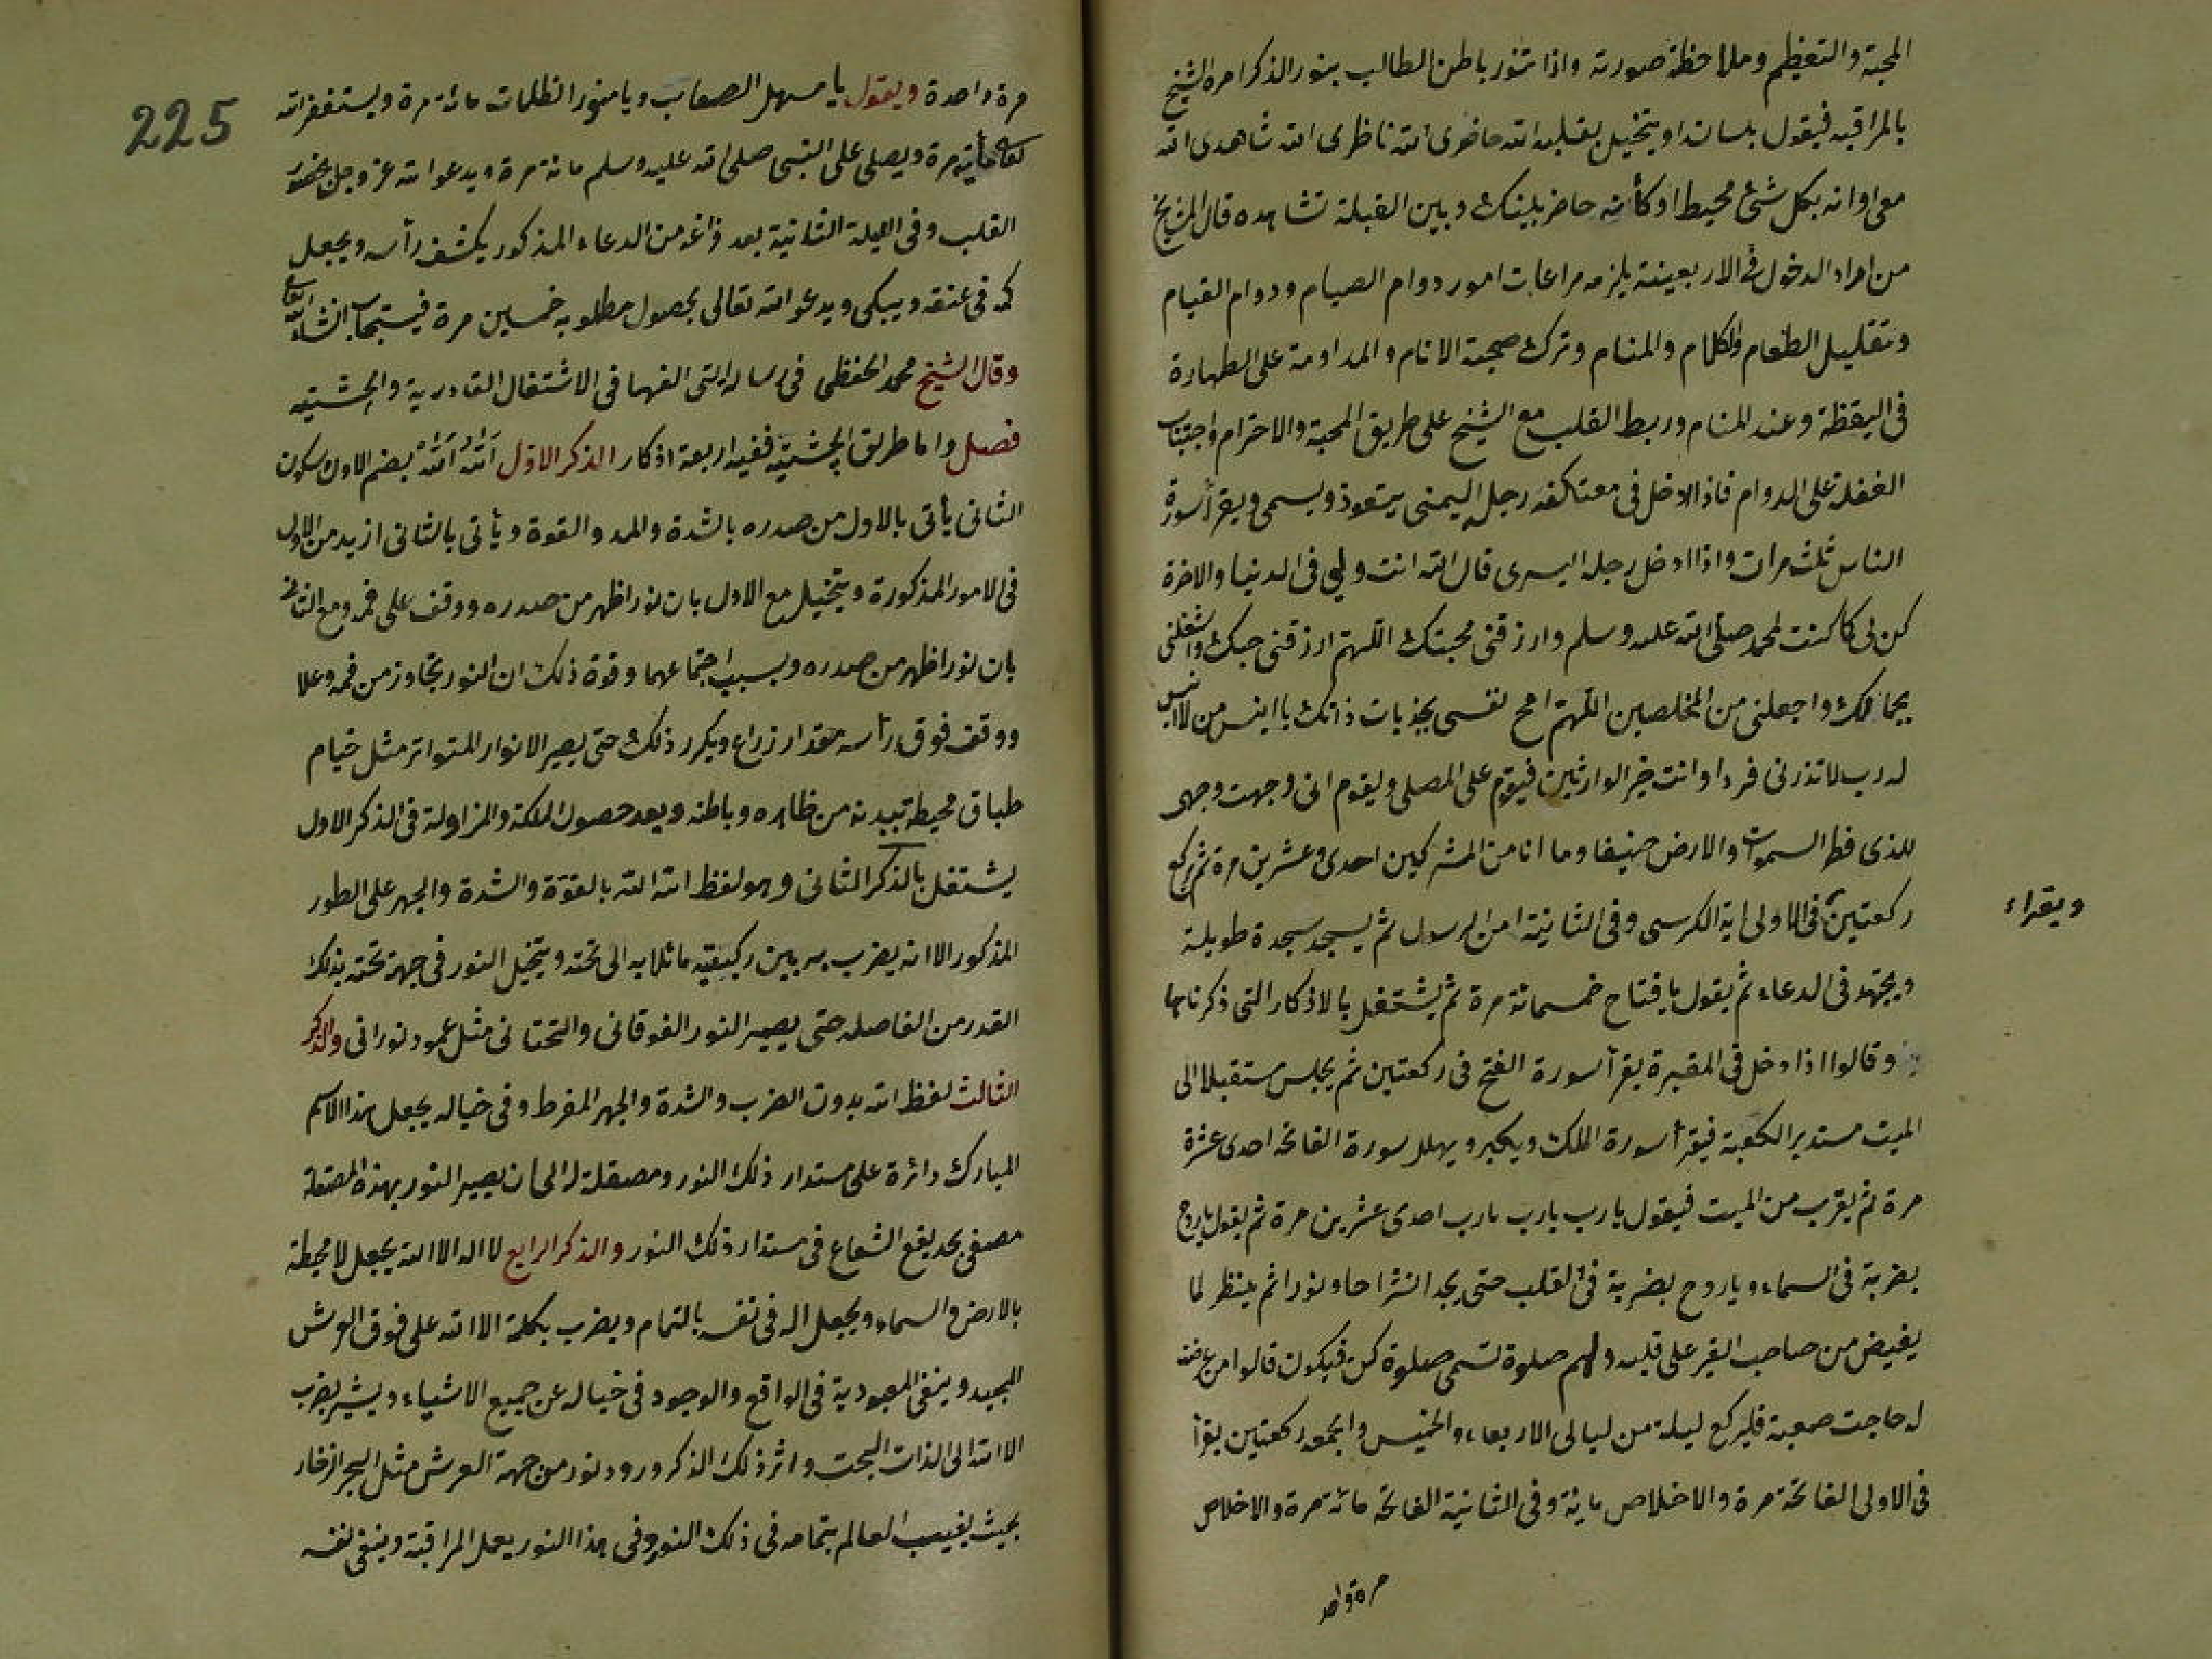 المحبة والتعظيم وملاحظة صورته واذا تنور باطن الطالب بنور الذكر امره الشيخ
بالمراقبه فيقول بلسانه او يتخيل بقلبه الله حاضرى الله ناظرى الله شاهدى الله
معى او انه بكل شئ محيط او كأنه حاضر بينك وبين القبلة تشاهده قال المشايخ
من اراد الدخول فى الاربعينة يلزمه مراعات امور دوام الصيام ودوام القيام
وتقليل الطعام والكلام والمنام وترك صحبة الانام والمداومة على الطهارة
فى اليقظة وعند المنام وربط القلب مع الشيخ على طريق المحبة والاحترام واجتناب
الغفلة على الدوام فاذا ادخل فى معتكفه رجله اليمنى يتعوذ ويسمى ويقرأ سورة
الناس ثلث مرات واذا ادخل رجله اليسرى قال الله انت وليى فى الدنيا والاخرة
كن لى كما كنت لمحمد صلى الله عليه وسلم وارزقنى محبتك اللهم ارزقنى حبك واشغلنى
بجمالك واجعلنى من المخلصين اللهم امح نفسى بجذبات ذاتك يا انيس من لا انيس
له رب لا تذرنى فردا وانت خير الوارثين فيقوم على المصلى ويقوم انى وجهت وجهى
للذى فطر السموات والارض حنيفا وما انا من المشركين احدى وعشرين مرة ثم يركع
ركعتين فى الاولى اية الكرسى وفى الثانية امن الرسول ثم يسجد سجدة طويلة
ويقراء
ويجتهد فى الدعاء ثم يقول يا فتاح خمسمائة مرة ثم يشتغل بالاذكار التى ذكرناها
وقالوا اذا دخل فى المقبرة يقرأ سورة الفتح فى ركعتين ثم يجلس مستقبلا الى
الميت مستدبر الكعبة فيقرأ سورة الملك ويكبر ويهلل سورة الفاتحه احدى عشرة
مرة ثم يقرب من الميت فيقول يا رب يا رب يا رب احدى عشرين مرة ثم يقول يا روح
بضربة فى السماء ويا روح بضربة فى القلب حتى يجد انشراحا ونورا ثم ينظر لما
يفيض من صاحب القبر على قلبه ولهم صلوة تسمى صلوة كن فيكون قالوا من عرضت
له حاجت صعبة فليركع ليلة من ليالى الاربعاء والخميس والجمعه ركعتين يقرأ
فى الاولى الفاتحة مرة والاخلاص ماية وفى الثانية الفاتحة مائة مرة والاخلاص
مرة واحد
225
مرة واحدة ويقول يا مسهل الصعاب ويا منور الظلمات مائة مرة ويستغفر الله
تعالى مأية مرة ويصلى على النبى صلى الله عليه وسلم مائة مرة ويدعو الله عز وجل بحضور
القلب وفى الليلة الثانية بعد فراغه من الدعاء المذكور يكشف رأسه ويجعل
كمه فى عنقه ويبكى ويدعو الله تعالى بحصول مطلوبه خمسين مرة فيستجاب انشاء الله تعالى
وقال الشيخ محمد الحفظى فى رساله التى الفها فى الاشتغال القادرية والچشتيه
فصل واما طريق الچشتيه ففيه اربعة اذكار الذكر الاول اَللّٰهُ اَللّٰهْ بضم الاول وسكون
الثانى يأتى بالاول من صدره بالشدة والمد والقوة ويأتى بالثانى ازيد من الاول
فى الامور المذكورة ويتخيل مع الاول بان نورا ظهر من صدره ووقف على فمه ومع الثانى
بان نورا ظهر من صدره وبسبب اجتماعهما وقوة ذلك ان النور تجاوز من فمه وعلا
ووقف فوق رأسه مقدار زراع ويكرر ذلك حتى يصير الانوار المتواتر مثل خيام
طباق محيطة ببدنه من ظاهره وباطنه وبعد حصول الملكة والمزاولة فى الذكر الاول
يشتغل بالذكر الثانى وهو لفظ الله الله بالقوة والشدة والجهر على الطور
المذكور الا انه يضرب به بين ركبتيه مائلا به الى تحته ويتخيل النور فى جهة تحته بذلك
القدر من الفاصله حتى يصير النور الفوقانى والتحتانى مثل عمود نورانى والذكر
الثالث لفظ الله بدون الضرب والشدة والجهر المفرط وفى خياله يجعل هذا الاسم
المبارك دائرة على مستدار ذلك النور ومصقلة له الى ان يصير النور بهذه المصقلة
مصفى بحد يقع الشعاع فى مستدار ذلك النور والذكر الرابع لا اله الا الله يجعل لا محيطة
بالارض والسماء ويجعل اله فى نفسه بالتمام ويضرب بكلمة الا الله على فوق العرش
المجيد وينفى المعبودية فى الواقع والوجود فى خياله عن جميع الاشياء ويشير بضرب
الا الله الى الذات البحت واثر ذلك الذكر ورود نور من جهة العرش مثل البحر الزخار
بحيث يغيب العالم بتمامه فى ذلك النور وفى هذا النور يعمل المراقبة وينفى نفسه